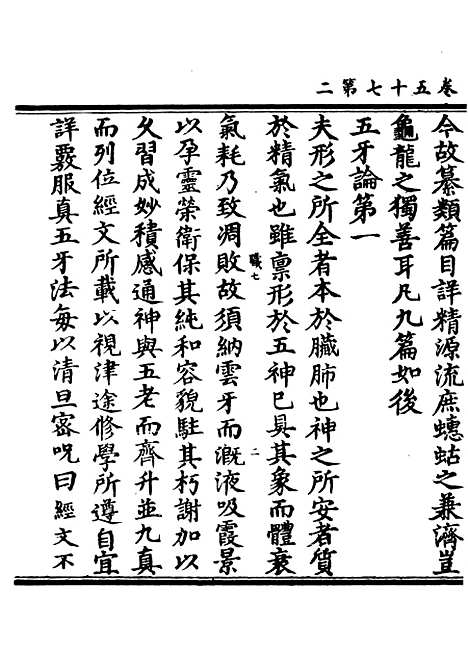 卷五十七第二
今故纂類篇目詳精源流庶蟪蛄之兼濟豈
龜龍之獨善耳凡九篇如後
五牙論第一
夫形之所全者本於臟肺也神之所安者質
於精氣也雖禀形於五神已具其象而體衰
職七 二
氣耗乃致凋敗故須納雲牙而溉液吸霞景
以孕靈榮衛保其純和容貌駐其朽謝加以
久習成妙積感通神與五老而齊升並九真
而列位經文所載以視津途修學所遵自宜
詳覈服真五牙法每以清旦密呪曰經文不